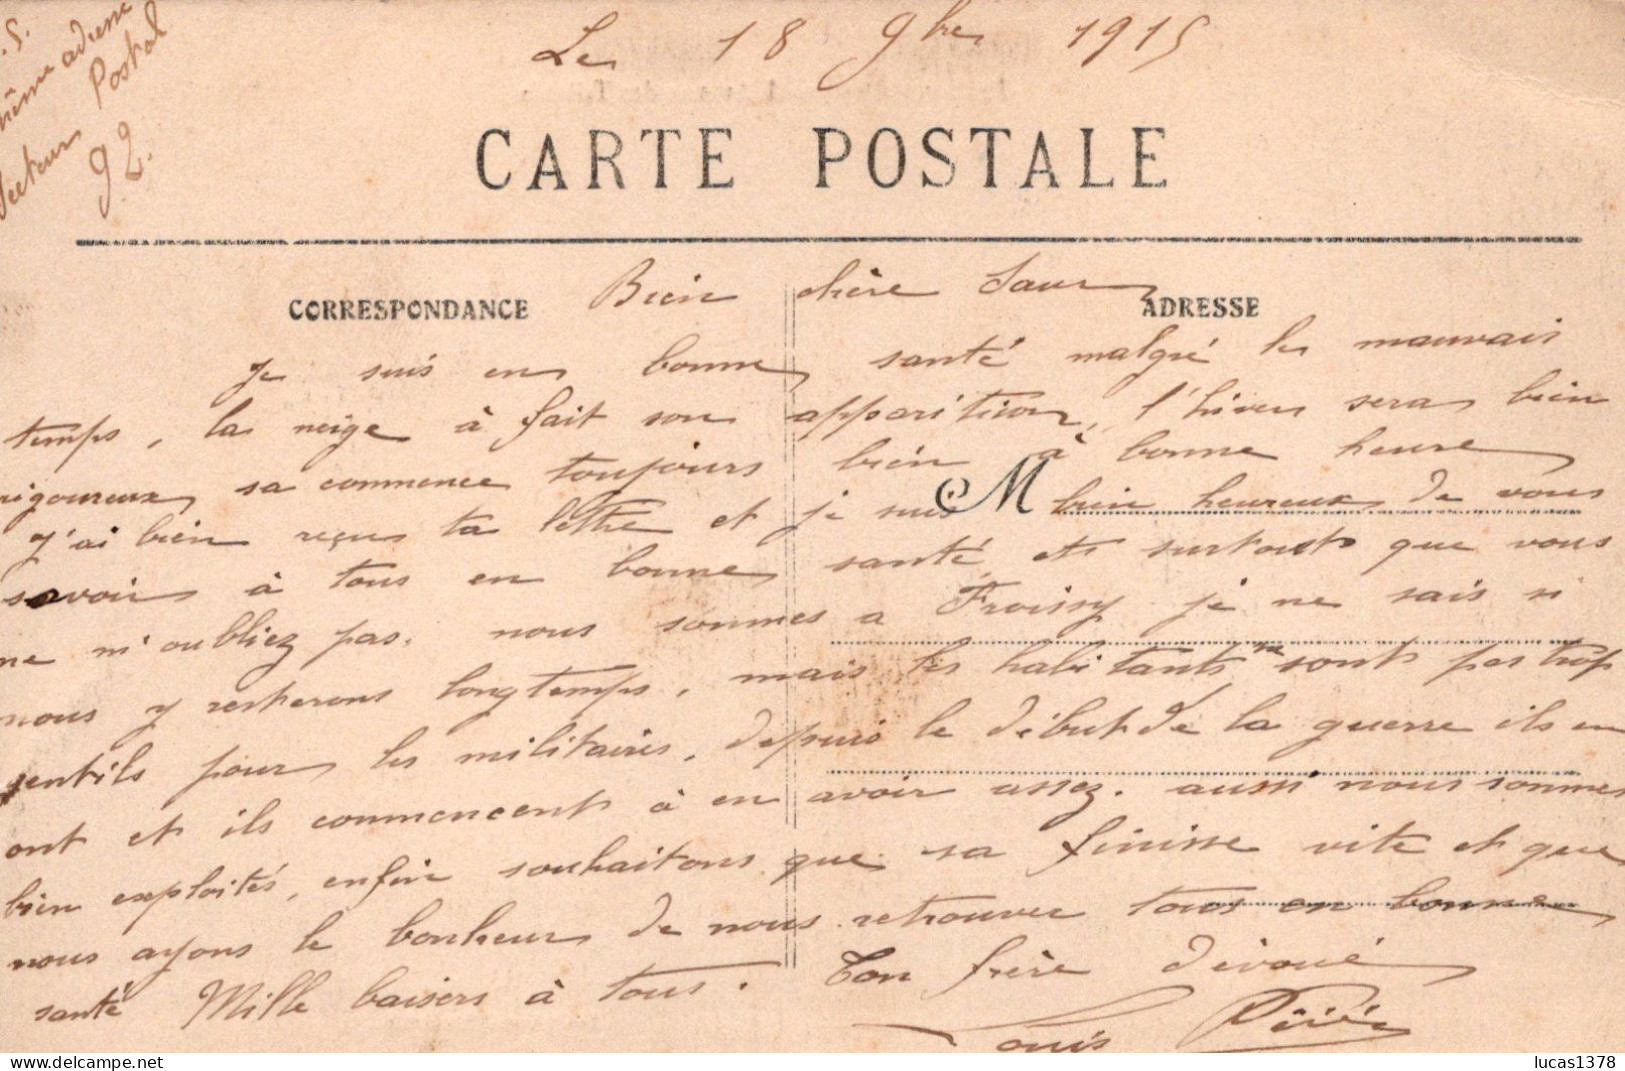 Le 18 9bre 1915
.S.
même adresse
Secteur Postal
92.
CARTE POSTALE
CORRESPONDANCE
ADRESSE
Bien chère Sœur
Je suis en bonne santé malgré le mauvais
temps, la neige à fait son apparition, l'hiver sera bien
rigoureux sa commence toujours bien à bonne heure
M
J'ai bien reçu ta lettre et je suis bien heureux de vous
savoir à tous en bonne santé et surtout que vous
ne m'oubliez pas. nous sommes a Froissy je ne sais si
nous y resterons longtemps, mais les habitants ne sont pas trop
gentils pour les militaires, depuis le début de la guerre ils en
ont et ils commencent à en avoir assez. aussi nous sommes
bien exploités, enfin souhaitons que sa finisse vite et que
nous ayons le bonheur de nous retrouver tous en bonne
santé Mille baisers à tous. Ton frère dévoué
Louis
lucas1378